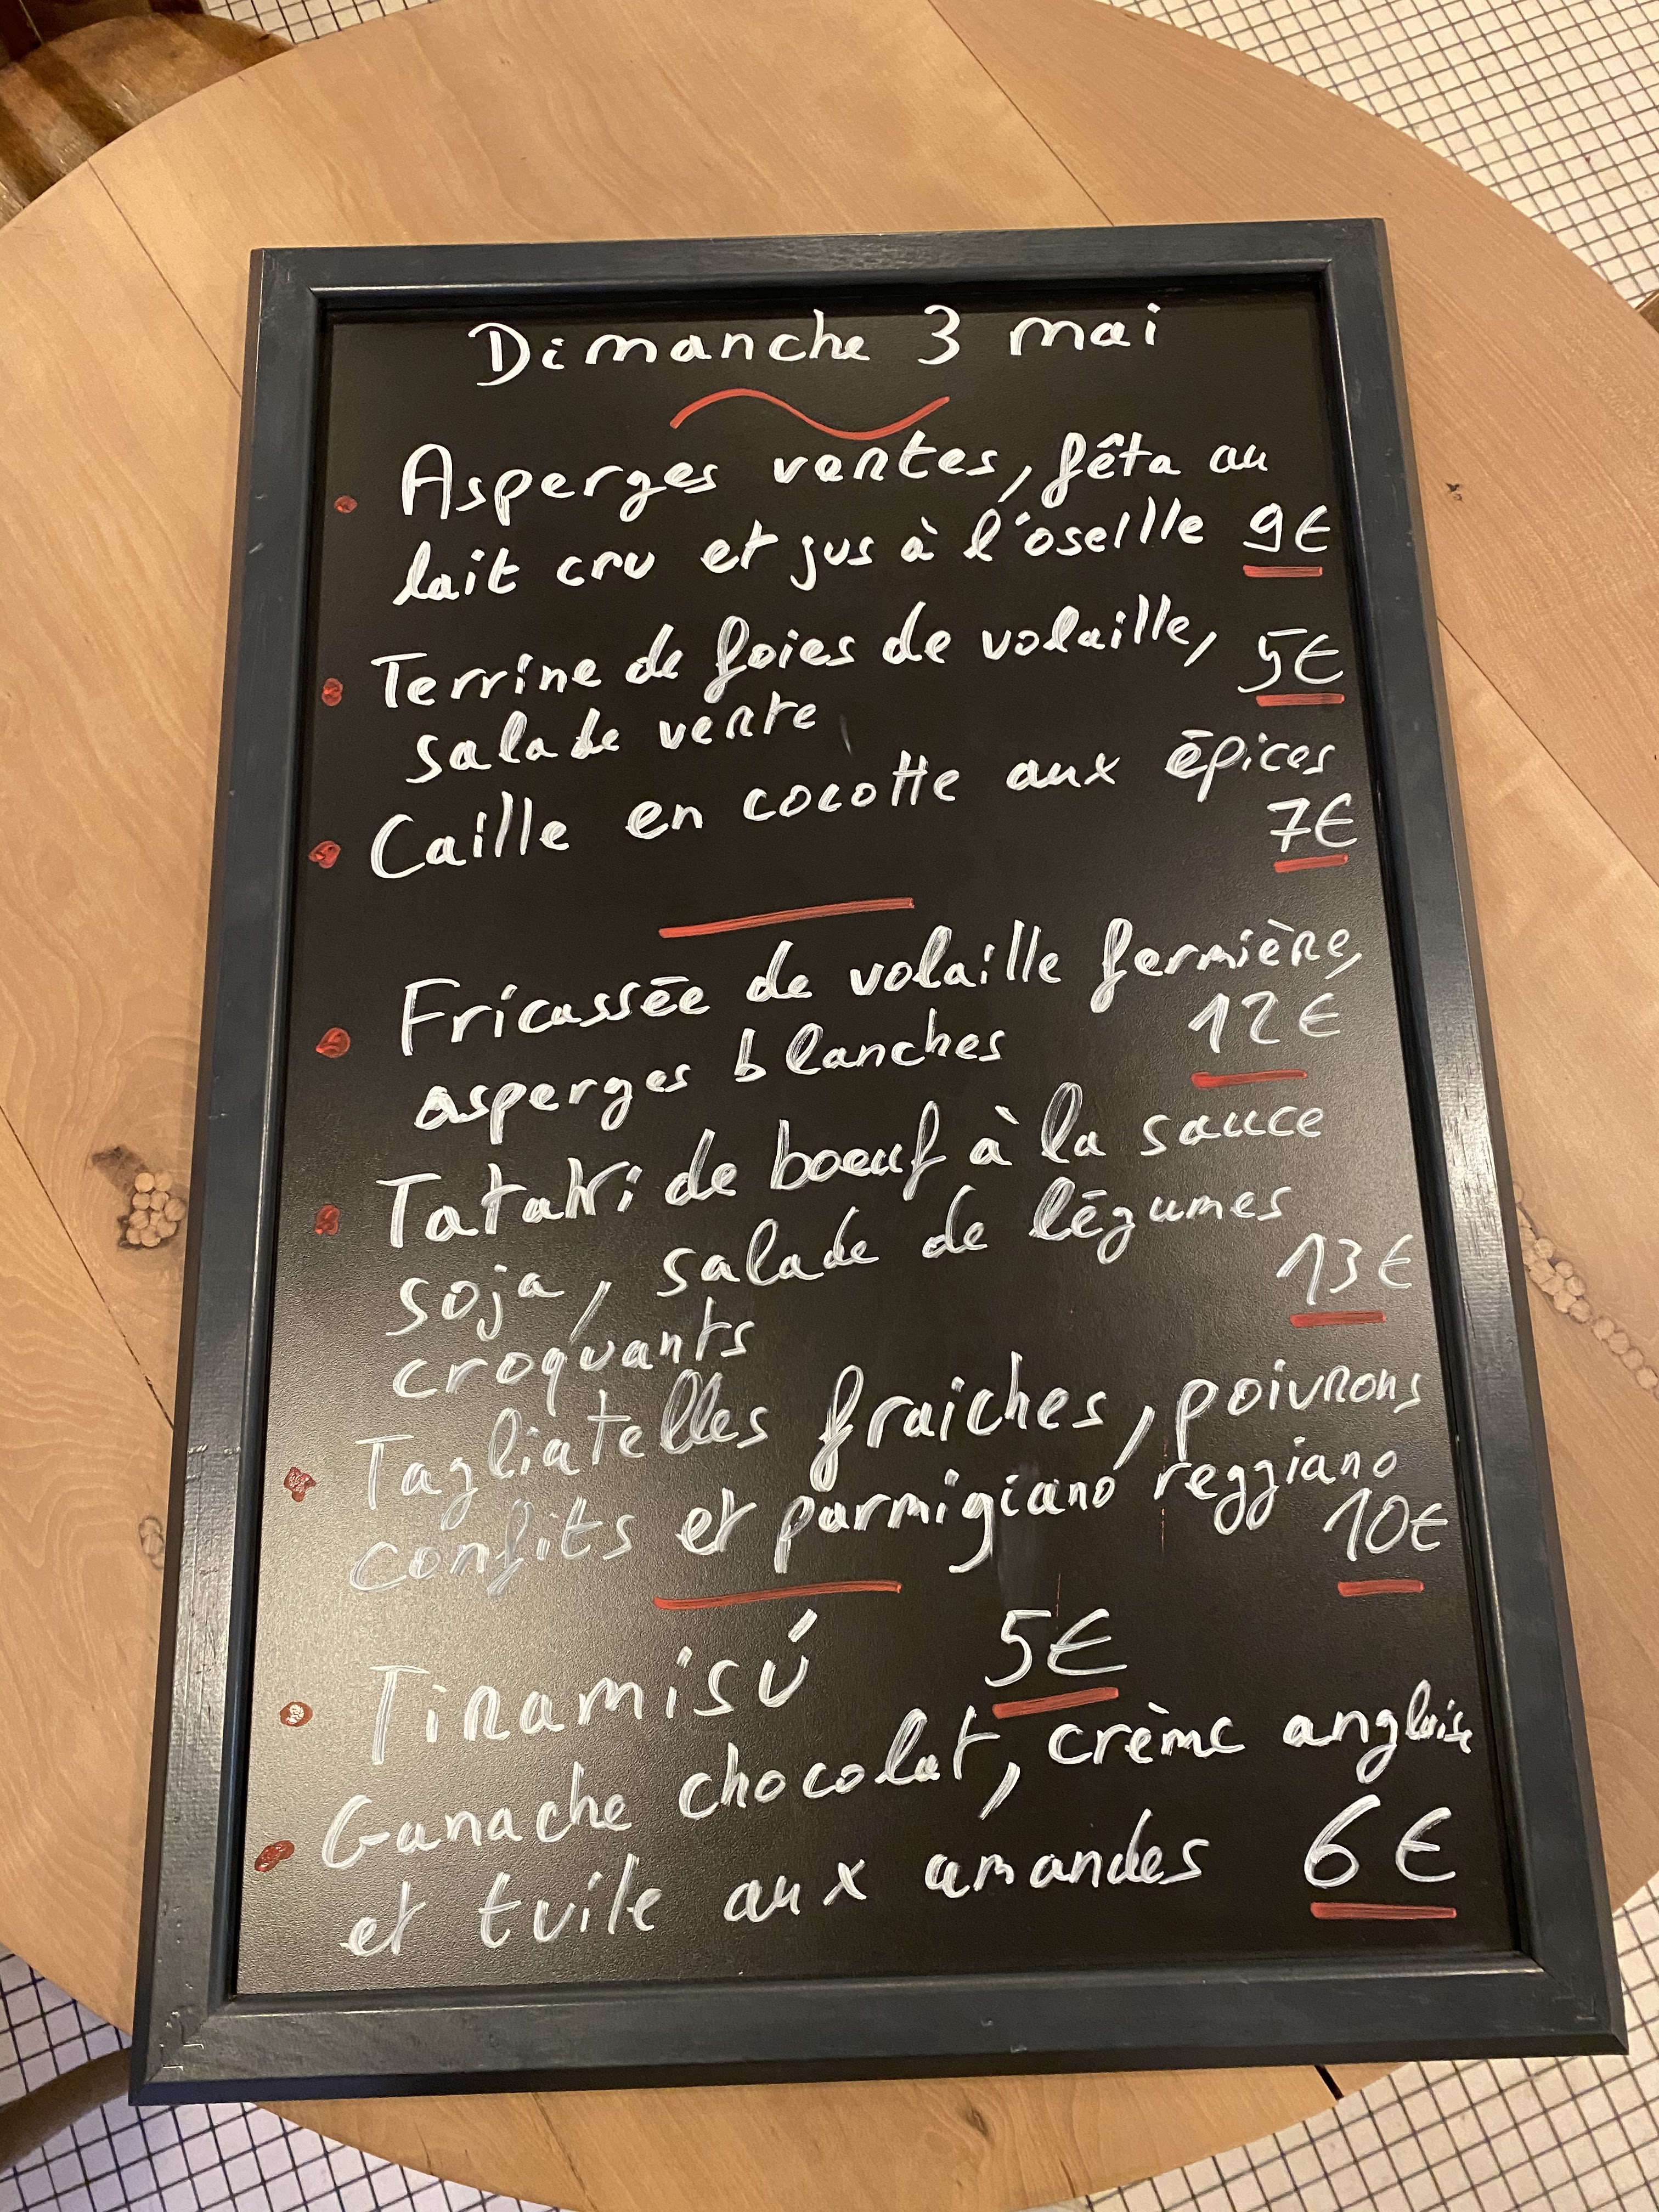 Dimanche 3 mai
Asperges vertes, fêta au
lait cru et jus à l'oseille 9€
Terrine de foies de volaille, 5€
salade verte
Caille en cocotte aux épices
7€
Fricassée de volaille fermière,
asperges blanches 12€
Tataki de boeuf à la sauce
soja, salade de légumes
croquants 13€
Tagliatelles fraiches, poivrons
confits et parmigiano reggiano
10€
Tiramisú 5€
Ganache chocolat, crème anglaise
et tuile aux amandes 6€